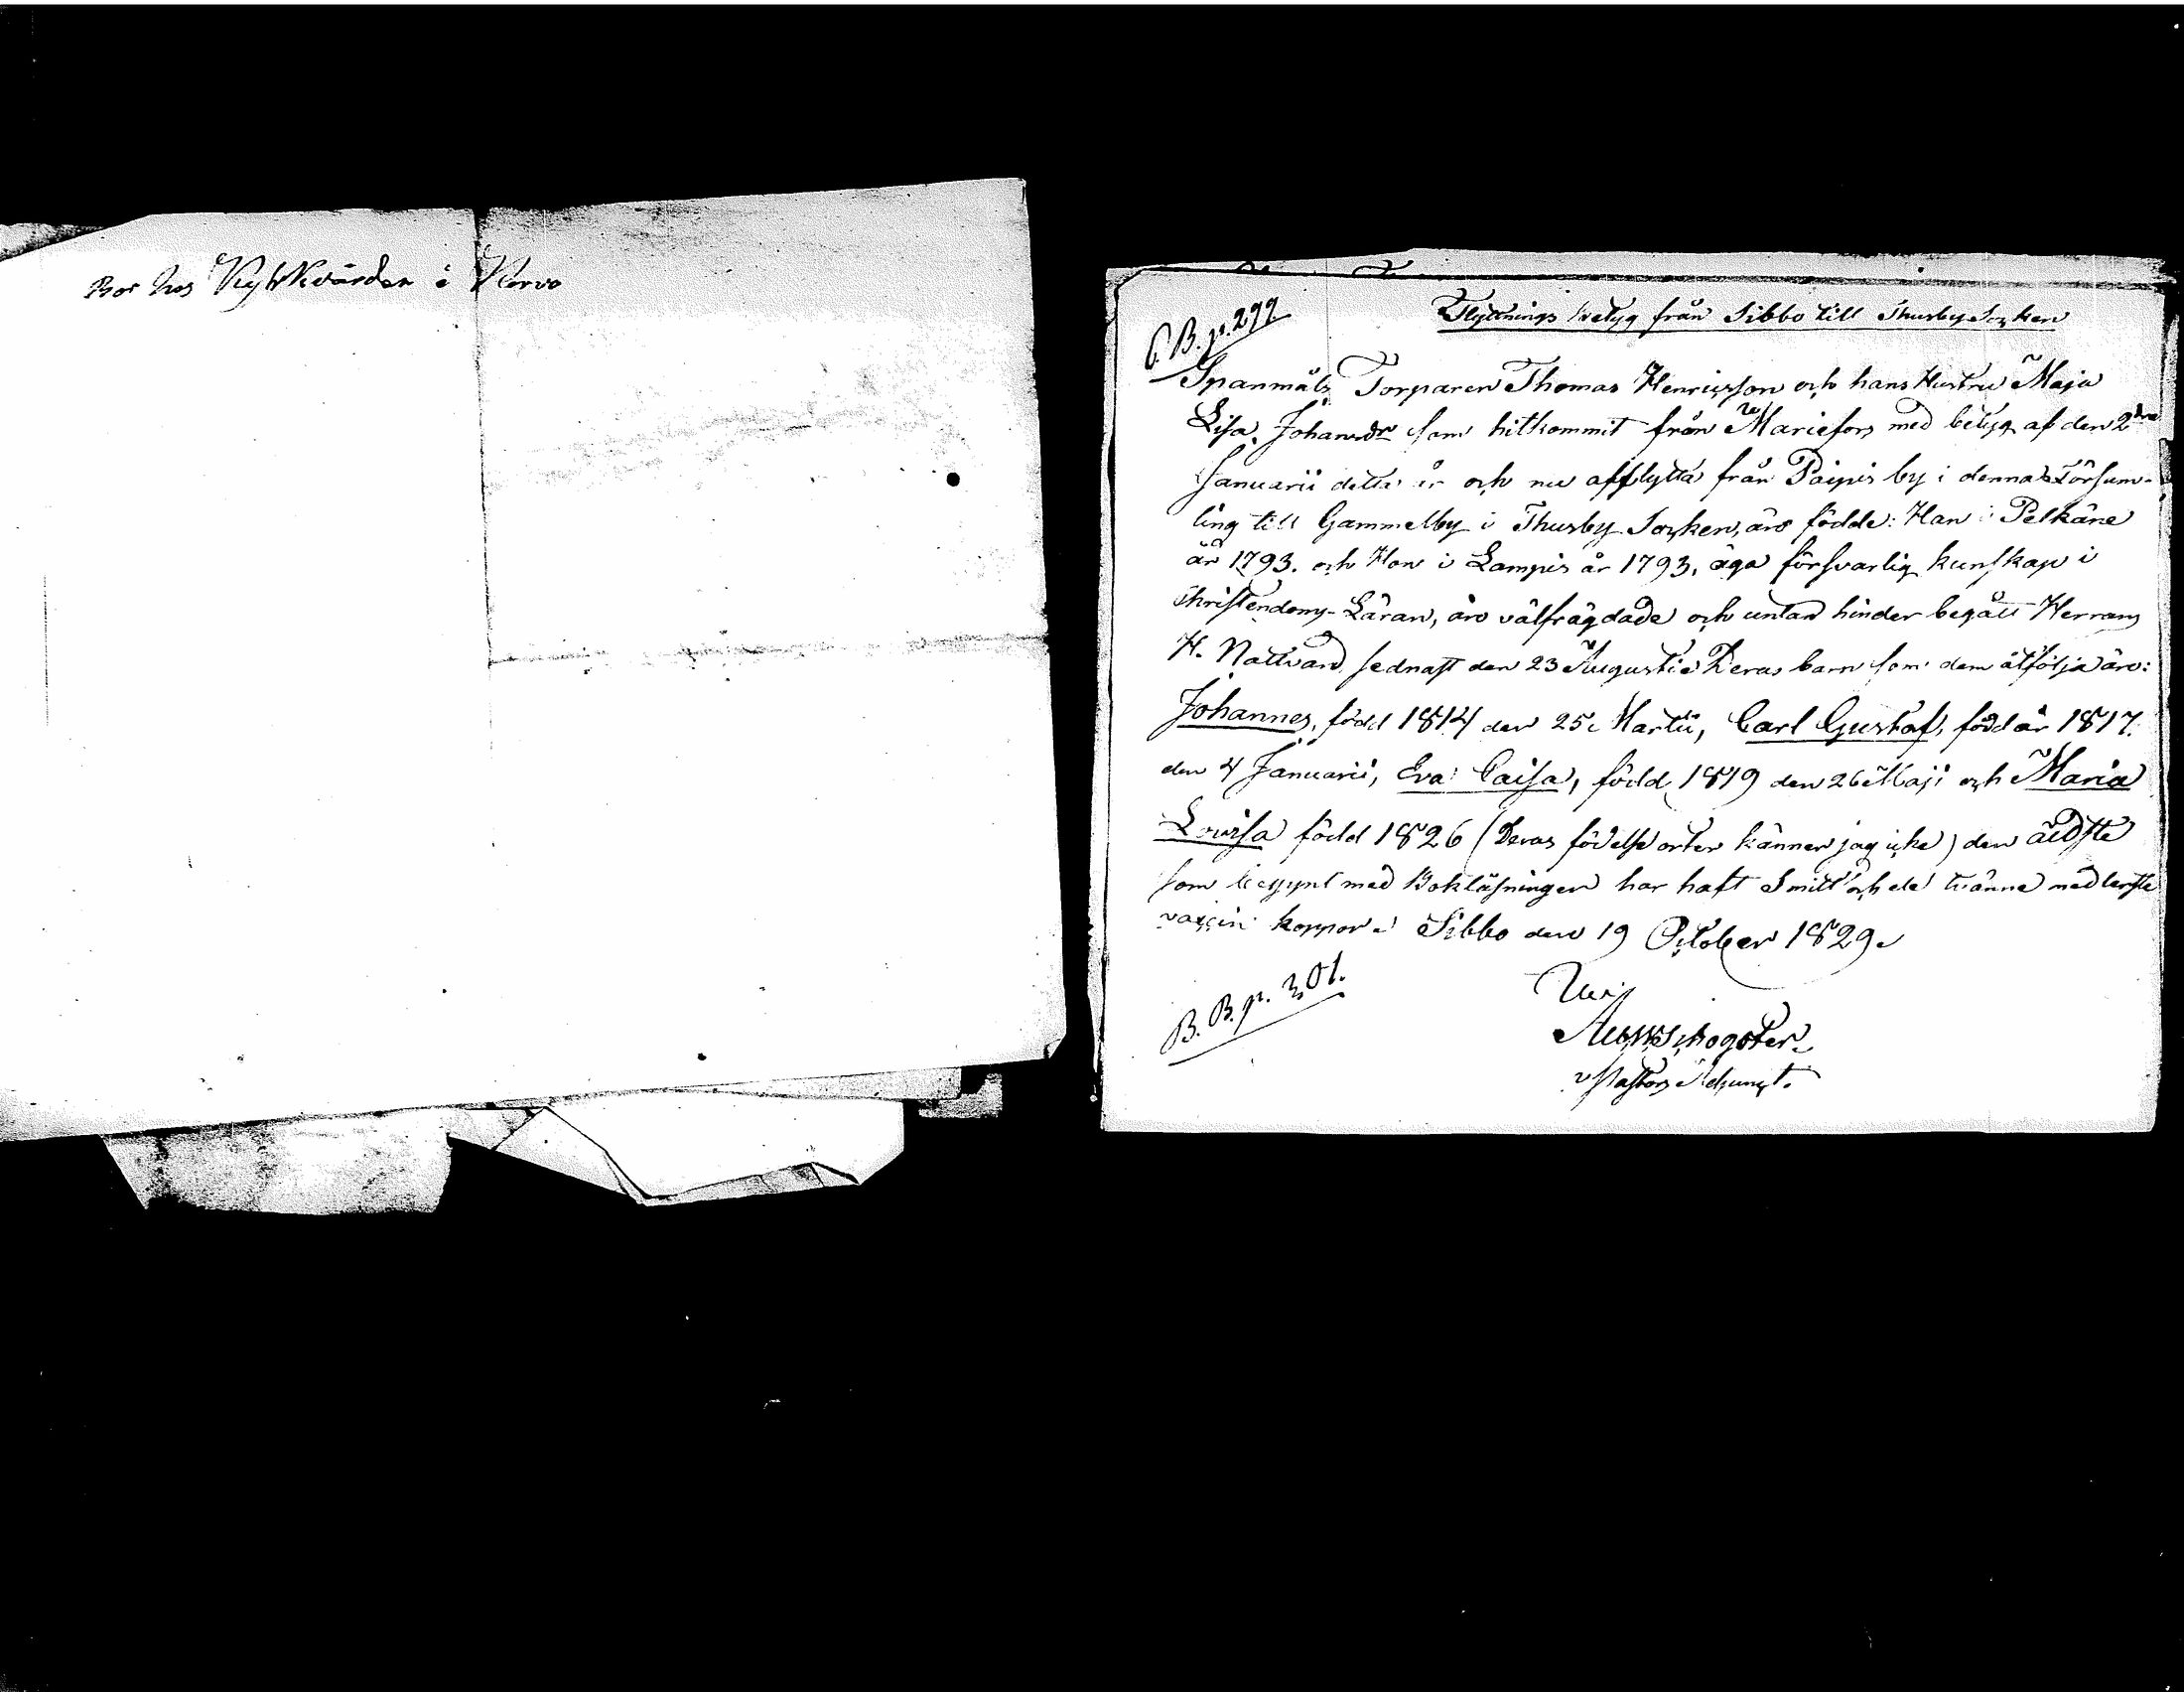 Bor hos Kyrkvärden i Kervo
C. B. p. 299
Flyttnings betyg från Sibbo till Thusby Socken
Spanmåls Torparen Thomas Henricsson och hans Hustru Maja
Lisa Johansdr som hitkommit från Mariefors med betyg af den 2dra
Januarii detta år och nu afflytta från Paipis by i denna Försam-
ling till Gammelby i Thusby Socken, äro födde: Han i Pelkäne
år 1793. och Hon i Lampis år 1793, äga försvarlig kunskap i
Christendoms-Läran, äro välfrägdade och untan hinder begått Herrans
H. Nattvard sednast den 23 Augusti. Deras barn som dem åtfölja äro:
Johannes, född 1814 den 25 Martii, Carl Gustaf, född år 1817.
den 4 Januarii, Eva Caisa, född 1819 den 26 Maji och Maria
Lovisa född 1826 (Deras födelse orter känner jag icke) den äldste
som begynt med Bokläsningen har haft Smitt och de tvänne medlerste
vaccin koppor. Sibbo den 19 October 1829.
B. B. p. 301.
v Pastors Adjunct.